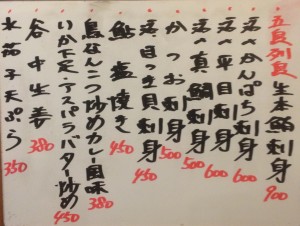 五島列島 生本鮪刺身 900
活〆かんぱち刺身 600
活〆平目刺身 600
活〆真鯛刺身 500
かつお刺身 500
活ほっき貝刺身 450
鮎塩焼き 450
鳥せんこつ炒めカレー風味 380
いか下足・アスパラバター炒め 450
谷中生姜 380
水茄子天ぷら 350